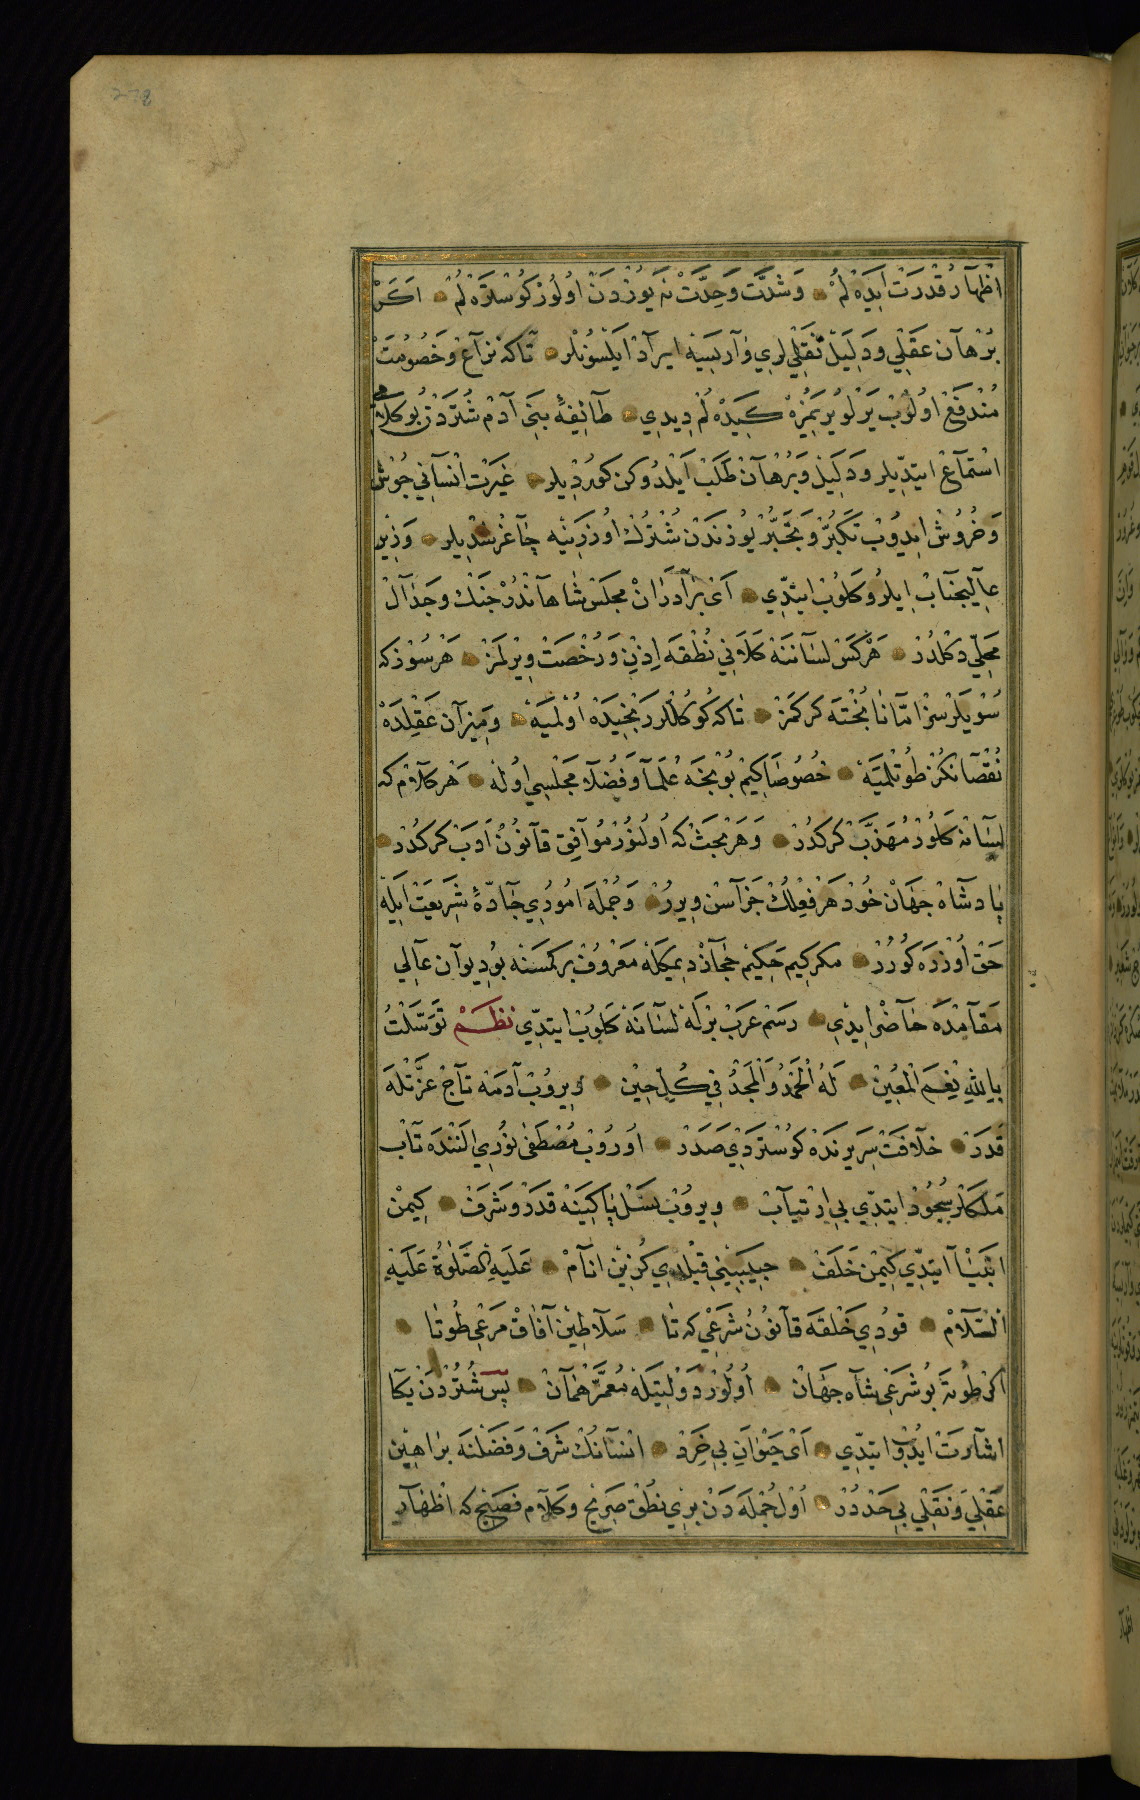 278
اظهار قدرت ایده لم وشدت وحدت نه یوزدن اولور کوستره لم اکر
برهان عقلی ودلیل نقلی لری وار سه ایراد ایلسونلر تاکه نزاع وخصومت
مندفع اولوب یرلو یریمزه کیده لم دیدی طائفۀ بنی آدم شتردن بو کلامی
استماع ایتدیلر ودلیل وبرهان طلب ایلدوکن کوردیلر غیرت انسانی جوش
وخروش ایدوب تکبر وتجبر یوزندن شترك اوزرینه چاغرشدیلر وزیر
عالیجناب ایلرو کلوب ایتدی ای برادران مجلس شاهاندر جنك وجدال
محلی دکلدر هر کس لساننه کلانی نطقه اذن ورخصت ویرلمز هر سوز که
سویلرسز امتانا پخته کرکمز تاکه کوکللر رنجیده اولمیه ومیزان عقلده
نقصانکز طوتلمیه خصوصا کیم بونجه علما وفضلا مجلسی اوله هر کلام که
لسانه کلور مهذب کرکدر وهر بحث که اولنور موافق قانون ادب کرکدر
پادشاه جهان خود هر فعلك جزاسن ویرر وجمله اموری جادۀ شریعت ایله
حق اوزره کورر مکر کیم حکیم حجاز دیمکله معروف بر کمسنه بو دیوان عالی
مقامنده حاضر ایدی رسم عرب بزله لسانه کلوب ایتدی نظم توسلت
بالله نعم المعین له الحمد والمجد فی کل حین ویروب آدمه تاج عزتله
قدر خلافت سریرنده کوستردی صدر اوروب مصطفی نوری النده تاب
ملکلر سجود ایتدی بی ارتیاب ویروب نسل پاکینه قدر وشرف کیمن
انبیا ایتدی کیمن خلف حبیبینی قیلدی کزین انام علیه الصلوة علیه
السلام قودی خلقه قانون شرعی که تا سلاطین آفاق مرعی طوتا
اکر طوته بو شرعی شاه جهان اولور دولتیله معمر همان پس شتردن یکا
اشارت ایدوب ایتدی ای حیوان بی خرد انسانك شرف وفضلنه براهین
عقلی ونقلی بی حددر اول جمله دن بری نطق صریح وکلام فصیح که اظهار